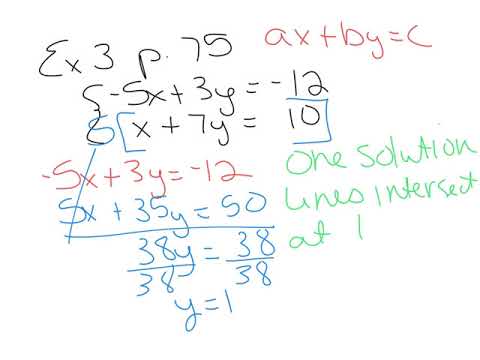 Ex 3 p. 75
ax+by=c
{-5x+3y=-12
5[x+7y=10]
-5x+3y=-12
5x+35y=50
38y=38
38 38
y=1
One solution
lines intersect
at 1